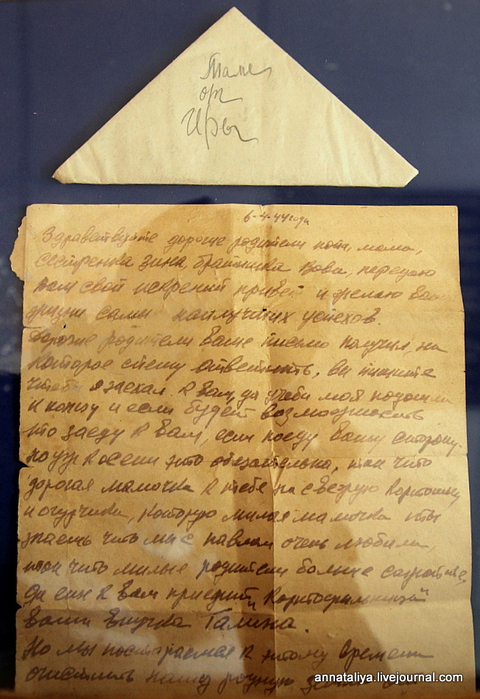 Тане
от
Иры
6-4-44 года
Здравствуйте дорогие родители папа, мама,
сестренка Зина, братишка Вова, передаю
вам свой искрений привет и желаю вам
жизни самы наилучших успехов.
Дорогие родители ваше письмо получил, на
которое спешу ответить, вы пишите
чтобы я заехал к вам, да учеба моя подходит
к концу и если будет возможность
то заеду к вам, если поеду вашу сторону.
ну уж к осени это обязательно, так что
дорогая мамочка к тебе на свежую картошку
и огурчики, которую милая мамочка ты
знаешь что мы с Павлом очень любили,
так что милые родители больше
да еще к вам приедит
ваша внучка Галина.
Но мы постараемся к этому времени
очистить нашу родную
annataliya.livejournal.com